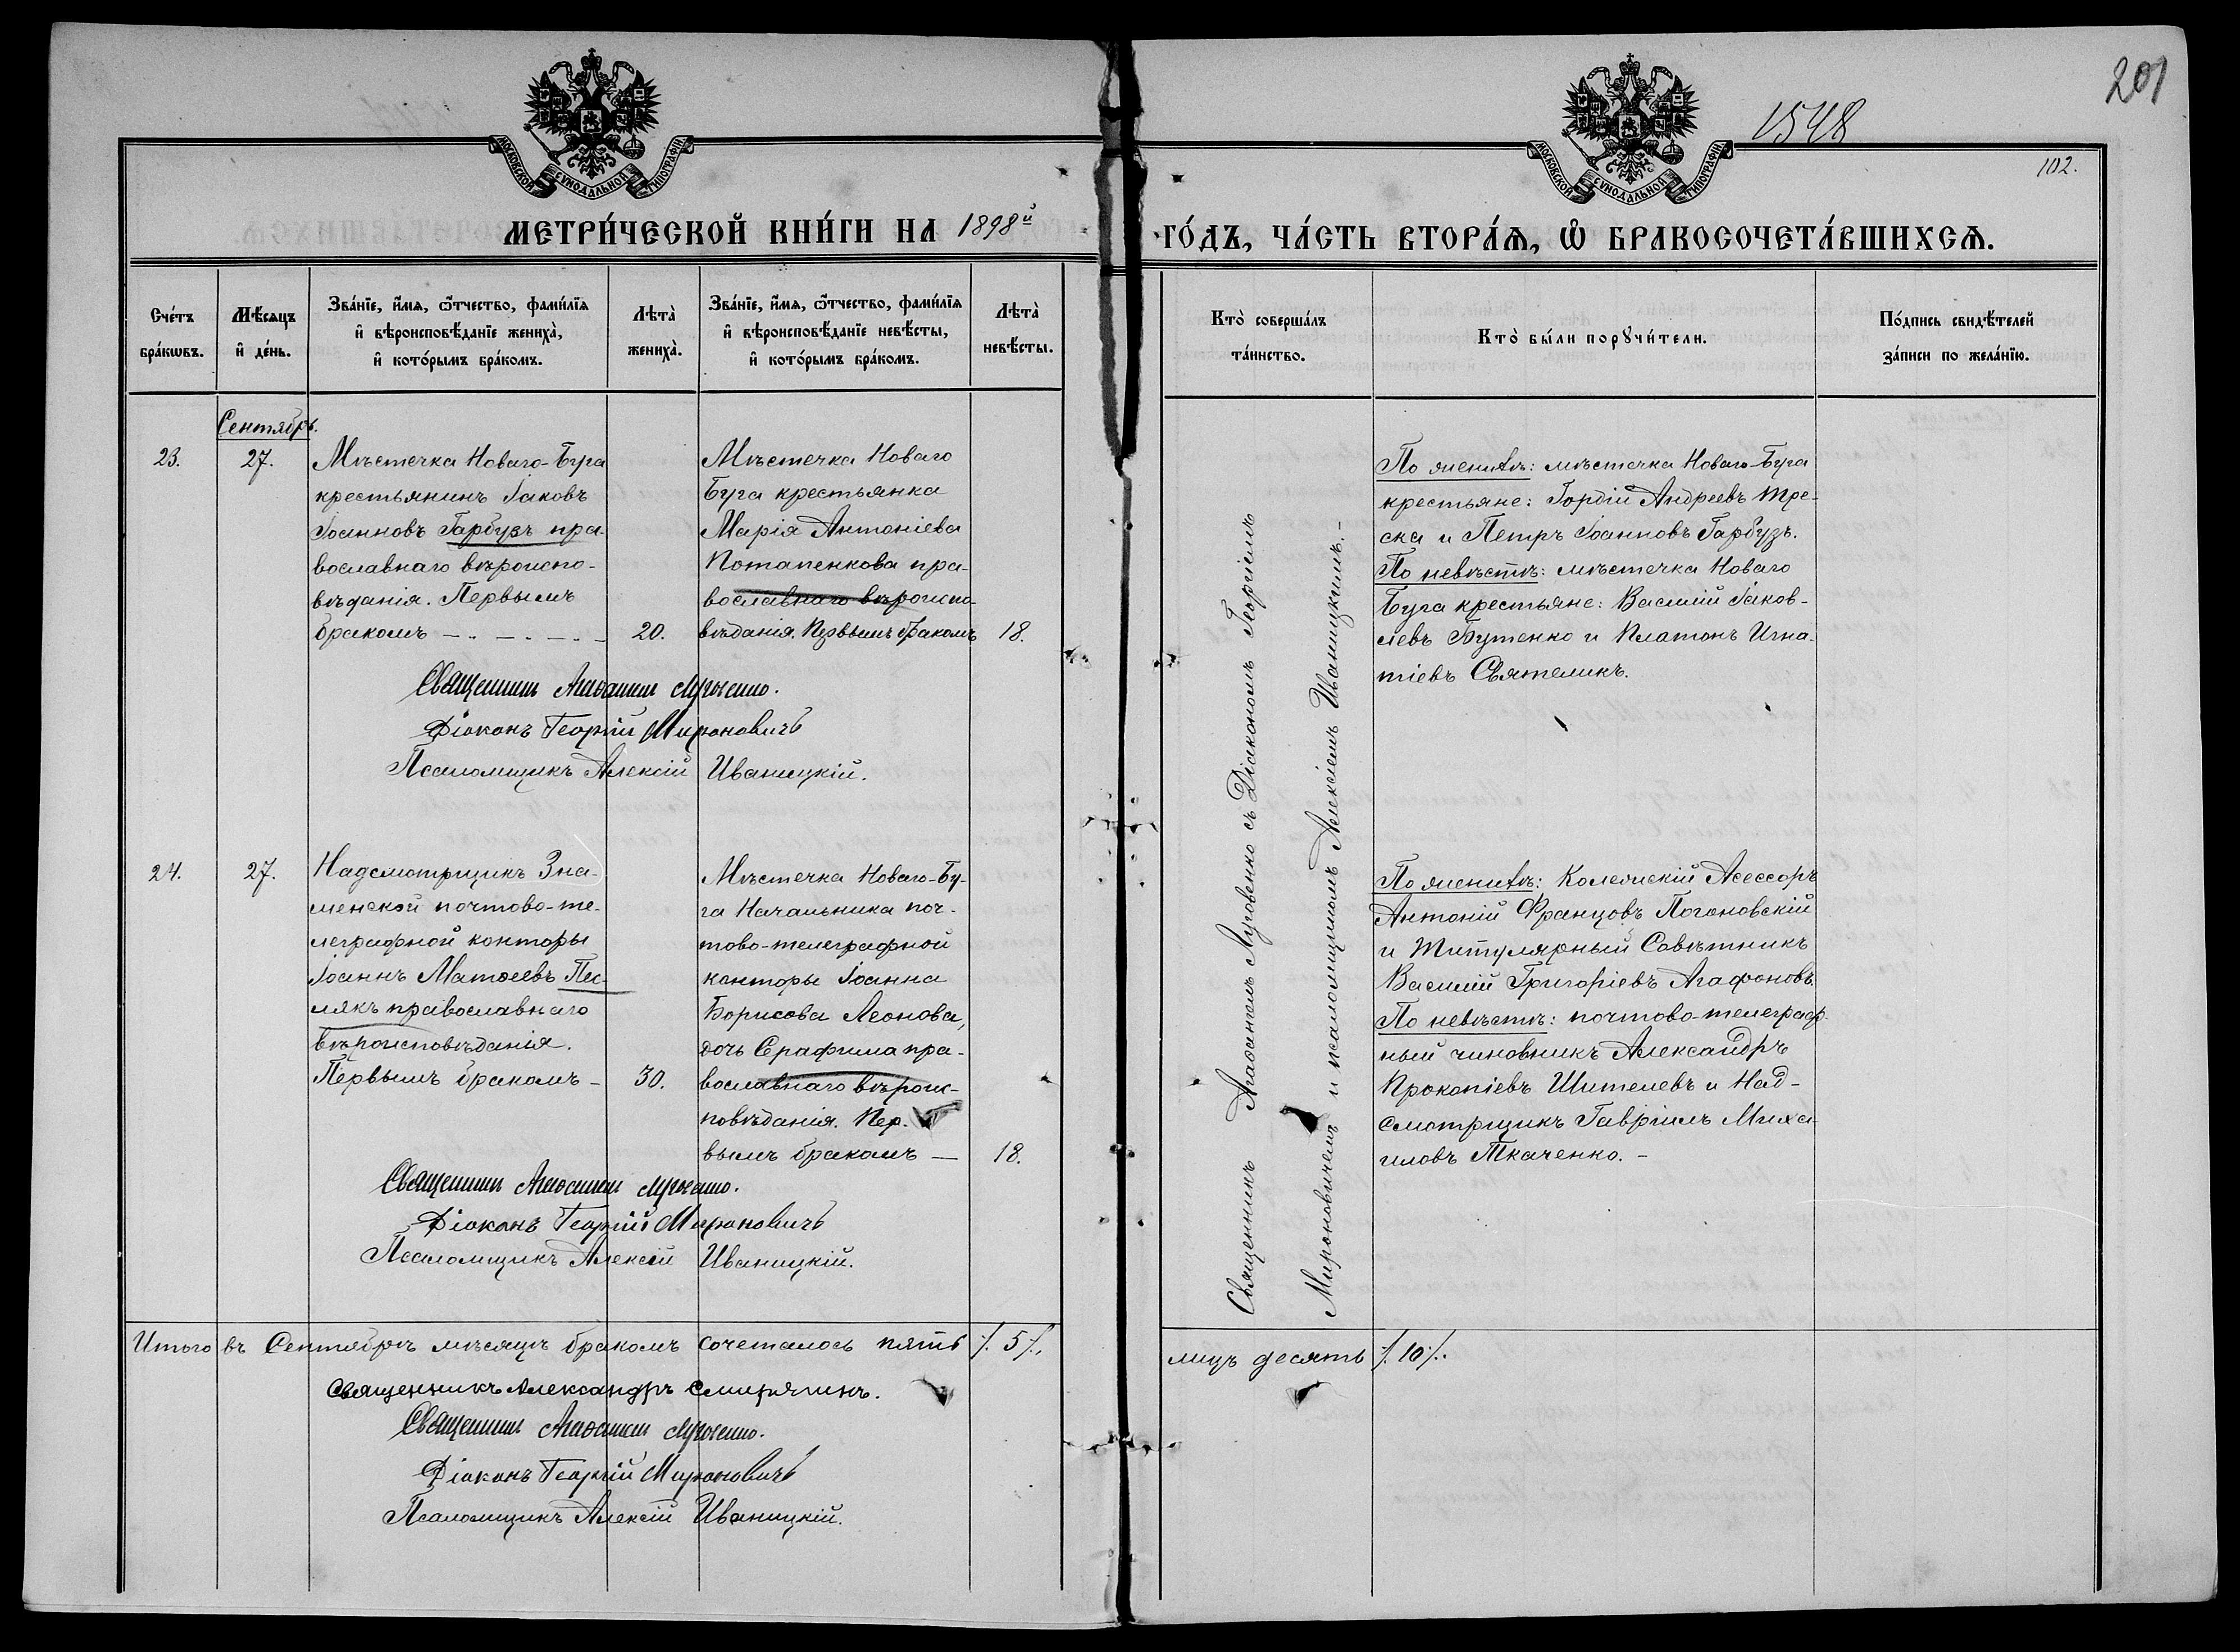 201
1548
102.
МОСКОВСКОЙ СѴНОДАЛЬНОЙ ТИПОГРАФІИ
МОСКОВСКОЙ СѴНОДАЛЬНОЙ ТИПОГРАФІИ
МЕТРИ́ЧЕСКОЙ КНИ́ГИ НА 1898й
ГО́ДЪ, ЧА́СТЬ ВТОРА́Ѧ, Ѽ БРАКОСОЧЕТА́ВШИХСѦ.
Сче́тъ
бра́кѡвъ.
Мѣ́сяцъ
и҆ де́нь.
Зва́нїе, и҆́мѧ, ѻ҆́тчество, фами́лїѧ
и҆ вѣроисповѣ́данїе жениха̀,
и҆ кото́рымъ бра́комъ.
Лѣта̀
жениха̀.
Зва́нїе, и҆́мѧ, ѻ҆́тчество, фами́лїѧ
и҆ вѣроисповѣ́данїе невѣ́сты,
и҆ кото́рымъ бра́комъ.
Лѣта̀
невѣ́сты.
Кто̀ соверша́лъ
та́инство.
Кто̀ бы́ли порꙋчи́тели.
По́дпись свидѣ́телей
за́писи по жела́нїю.
Сентябрь.
23.
27.
Мѣстечка Новаго-Буга
крестьянинъ Іаковъ
Іоанновъ Гарбузъ пра-
вославнаго вѣроиспо-
вѣданія. Первымъ
бракомъ
20.
Мѣстечка Новаго
Буга крестьянка
Марія Антоніева
Потапенкова пра-
вославнаго вѣроиспо-
вѣданія. Первымъ бракомъ
18.
Священникъ Агаѳангелъ Луговенко съ Діакономъ Георгіемъ
Мироновичемъ и псаломщикомъ Алексіемъ Иваницкимъ.-
По женихѣ: мѣстечка Новаго-Буга
крестьяне: Гордій Андреевъ Тре-
ска и Петръ Іоанновъ Гарбузъ.
По невѣстѣ: мѣстечка Новаго
Буга крестьяне: Василій Іаков-
левъ Бутенко и Платонъ Игна-
тіевъ Святеликъ.
Священникъ Агаѳангелъ Луговенко.
Діаконъ Георгій Мироновичъ
Псаломщикъ Алексій Иваницкій.
24.
27.
Надсмотрщикъ Зна-
менской почтово-те-
леграфной конторы
Іоаннъ Матѳеевъ Пес-
лякъ православнаго
вѣроисповѣданія.
Первымъ бракомъ -
30.
Мѣстечка Новаго-Бу-
га Начальника поч-
тово-телеграфной
конторы Іоанна
Борисова Леонова,
дочь Серафима пра-
вославнаго вѣроис-
повѣданія. Пер-
вымъ бракомъ —
18.
По женихѣ: Коллежскій Асессоръ
Антоній Францовъ Погоновскій
и Титулярный Совѣтникъ
Василій Григоріевъ Агафоновъ.
По невѣстѣ: почтово-телеграф-
ный чиновникъ Александръ
Прокопіевъ Шителевъ и Над-
смотрщикъ Гавріилъ Миха-
иловъ Ткаченко. -
Священникъ Агаѳангелъ Луговенко.
Діаконъ Георгій Мироновичъ
Псаломщикъ Алексій Иваницкій.
Итого въ Сентябрѣ мѣсяцѣ бракомъ сочеталось пять ⁒ 5 ⁒,
лицъ десять ⁒ 10 ⁒.
Священникъ Александръ Смирягинъ.
Священникъ Агаѳангелъ Луговенко.
Діаконъ Георгій Мироновичъ
Псаломщикъ Алексій Иваницкій.